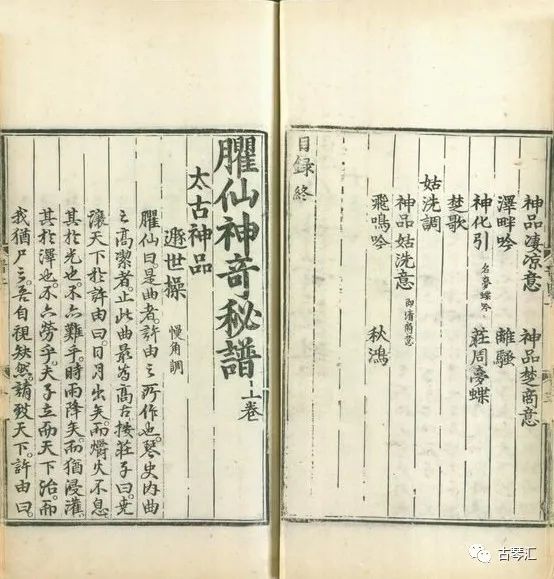 神品凄凉意 神品楚商意
澤畔吟 離騷
神化引 名夢蝶吟 莊周夢蝶
楚歌
姑洗調
神品姑洗意 即清商意
飛鳴吟 秋鴻
目録終
臞仙神奇秘譜上卷
太古神品
遯世操 慢角調
臞仙曰。是曲者。許由之所作也。琴史内曲
之高潔者。止此曲最爲高古。按莊子曰。堯
讓天下於許由。曰。日月出矣。而爝火不息。
其於光也。不亦難乎。時雨降矣。而猶浸灌。
其於澤也。不亦勞乎。夫子立而天下治。而
我猶尸之。吾自視缺然。請致天下。許由曰。
古琴汇